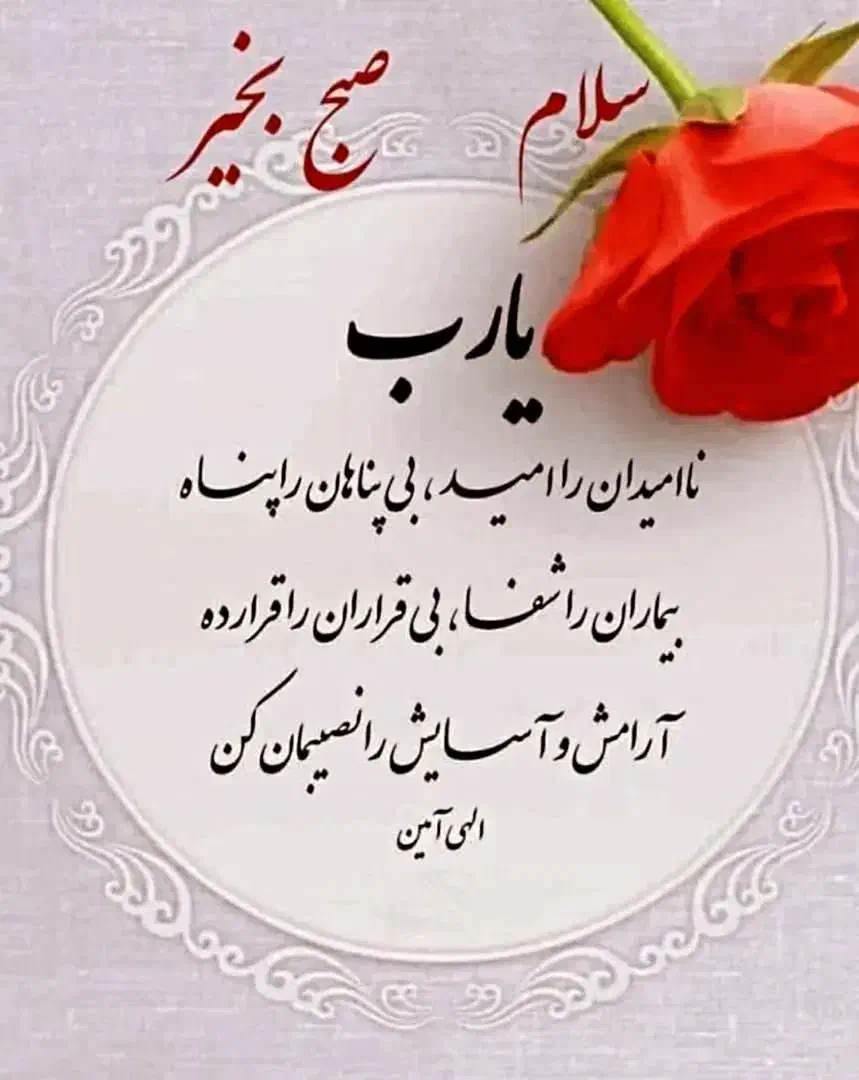 سلام صبح بخیر
یارب
ناامیدان را امید، بی پناهان را پناه
بیماران را شفا، بی قراران را قرار ده
آرامش و آسایش را نصیبمان کن
الهی آمین